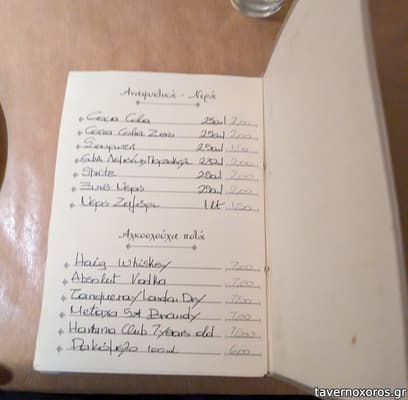 Αναψυκτικά - Νερά
Coca Cola 25cl 2,00
Coca Cola Zero 25cl 2,00
25cl 1,50
25cl 2,00
Sprite 25cl 2,00
Ξινό Νερό 25cl 2,00
Νερό Ζαγόρι 1 lt 1,50
Αλκοολούχα ποτά
Haig Whiskey 7,00
Absolut Vodka 7,00
Tanqueray London Dry 7,00
Metaxa 5* Brandy 7,00
Havana Club 7 years old
Ρακόμελο 100ml 6,00
tavernoxoros.gr